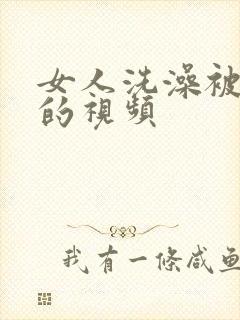 女人洗澡被
的視頻
我有一條咸鱼